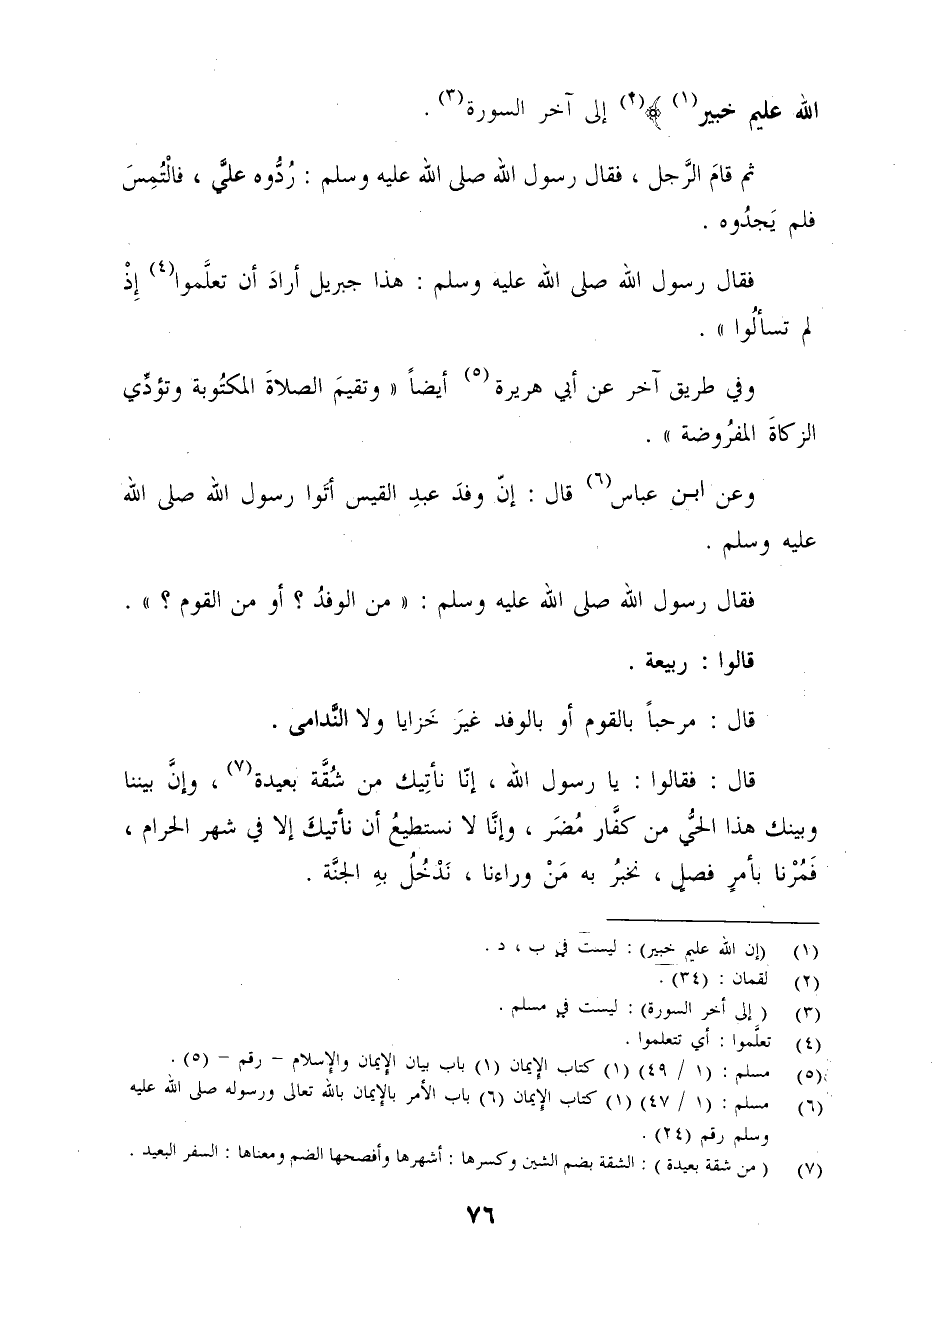 الله عليم خبير(١) ﴾(٢) إلى آخر السورة(٣) .
ثم قامَ الرَّجل ، فقال رسول الله صلى الله عليه وسلم : رُدُّوه عليَّ ، فالْتُمِسَ
فلم يَجدُوه .
فقال رسول الله صلى الله عليه وسلم : هذا جبريل أرادَ أن تعلَّموا(٤) إِذْ
لم تسألُوا » .
وفي طريق آخر عن أبي هريرة(٥) أيضاً « وتقيمَ الصلاةَ المكتُوبة وتؤدِّي
الزكاةَ المفرُوضة » .
وعن ابن عباس(٦) قال : إنّ وفدَ عبدِ القيس أتَوا رسول الله صلى الله
عليه وسلم .
فقال رسول الله صلى الله عليه وسلم : « من الوفدُ ؟ أو من القوم ؟ » .
قالوا : ربيعة .
قال : مرحباً بالقوم أو بالوفد غيرَ خَزايا ولا النَّدامى .
قال : فقالوا : يا رسول الله ، إنّا نأتِيك من شُقَّة بعيدة(٧) ، وإنَّ بيننا
وبينك هذا الحيُّ من كفَّار مُضَر ، وإنَّا لا نستطيعُ أن نأتيكَ إلا في شهر الحرام ،
فَمُرْنا بأمرٍ فصلٍ ، نخبرُ به مَنْ وراءنا ، نَدْخُلُ بهِ الجنَّة .
(١) (إن الله عليم خبير) : ليست في ب ، د .
(٢) لقمان : (٣٤) .
(٣) ( إلى أخر السورة) : ليست في مسلم .
(٤) تعلَّموا : أي تتعلموا .
(٥) مسلم : (١ / ٤٩) (١) كتاب الإيمان (١) باب بيان الإيمان والإسلام – رقم – (٥) .
(٦) مسلم : (١ / ٤٧) (١) كتاب الإيمان (٦) باب الأمر بالإيمان بالله تعالى ورسوله صلى الله عليه
وسلم رقم (٢٤) .
(٧) ( من شقة بعيدة ) : الشقة بضم الشين وكسرها : أشهرها وأفصحها الضم ومعناها : السفر البعيد .
٧٦